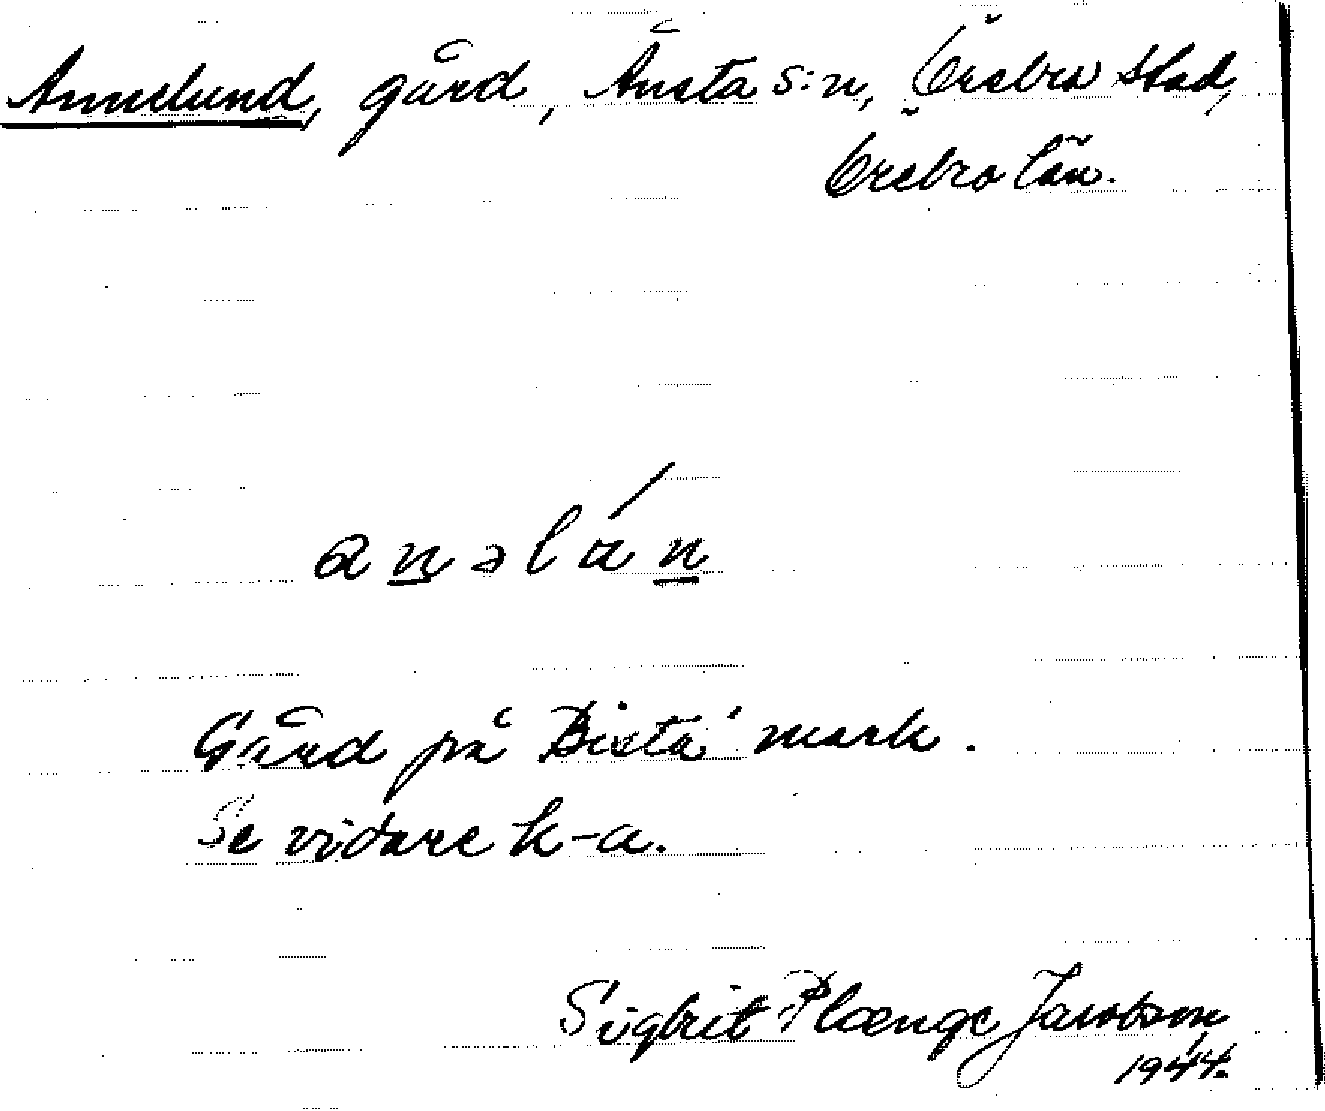 Annelund, gård, Ånsta s:n, Örebro stad,
Örebro län.
anəlún
Gård på Bista mark.
Se vidare k-a.
Sigbrit Plænge Jacobson
1944.